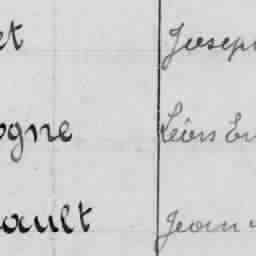 et Joseph
ogne Léon Er
ault Jean